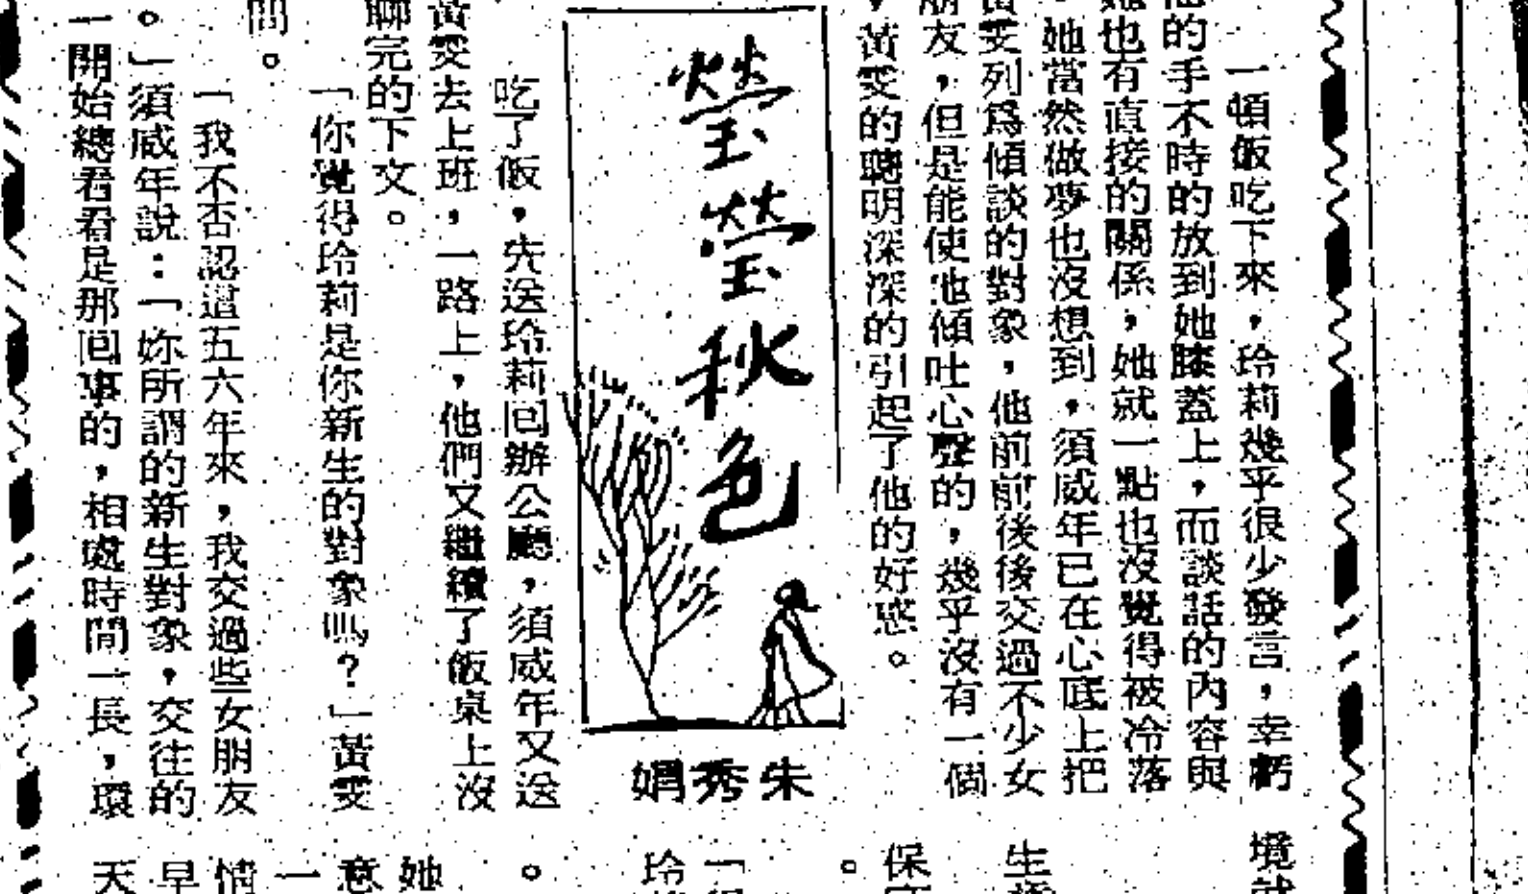 一頓飯吃下來，玲莉幾乎很少發言，幸虧
他的手不時的放到她膝蓋上，而談話的內容與
她也有直接的關係，她就一點也沒覺得被冷落
。她當然做夢也沒想到，須威年已在心底上把
黃雯列爲傾談的對象，他前前後後交過不少女
朋友，但是能使他傾吐心聲的，幾乎沒有一個
，黃雯的聰明深深的引起了他的好感。
瑩瑩秋色
朱秀娟
吃了飯，先送玲莉回辦公廳，須威年又送
黃雯去上班，一路上，他們又繼續了飯桌上沒
聊完的下文。
「你覺得玲莉是你新生的對象嗎？」黃雯
問。
「我不否認這五六年來，我交過些女朋友
。」須威年說：「妳所謂的新生對象，交往的
一開始總看看是那回事的，相處時間一長，環
境
生
保
。
「
玲
。
她
意
一
情
早
天